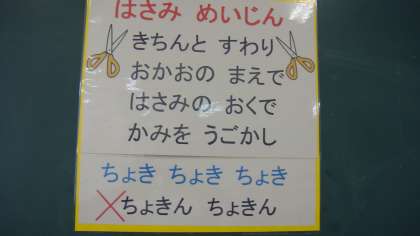 はさみ めいじん
きちんと すわり
おかおの まえで
はさみの おくで
かみを うごかし
ちょき ちょき ちょき
×ちょきん ちょきん